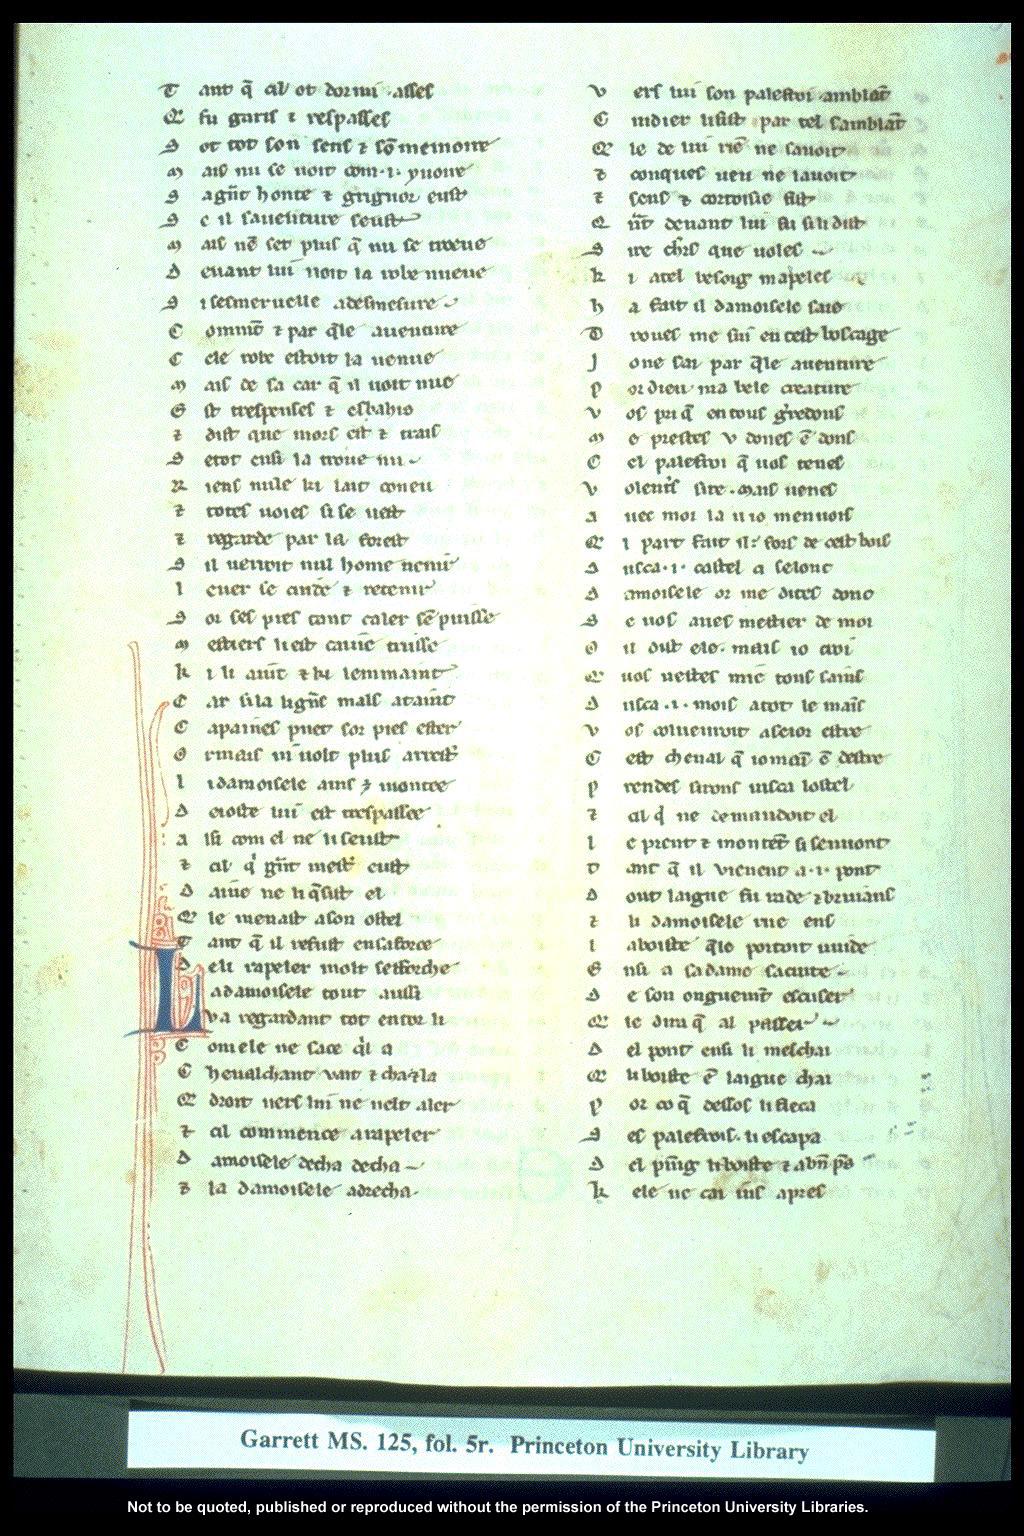 T ant q̄ cil ot dormi asses
Q̄ fu garis ⁊ respasses
S ot tot son sens ⁊ sō memoire
M ais nu se uoit com .i. yuoire
S agn̄t honte ⁊ grignor eust
S e il sauenture seust
M ais nē set plus q̄ nu se troeue
D euant lui uoit la robe nueue
S i sesmeruelle a desmesure
C ommēt ⁊ par q̄le auenture
C ele robe estoit la uenue
M ais de sa car q̄ il uoit nue
E st trespenses ⁊ esbahis
⁊ dist que mors est ⁊ trais
S
R iens nule ki lait coneu
⁊ totes uoies si se uest
⁊ regarde par la forest
S il uerroit nul home uenir
L euer se cuide ⁊ retenir
M estiers li est
K i li
C ar
C
O rmais ni uolt plus arrester
L i damoisele
D eioste lui est trespassee
A isi com el ne li seust
⁊ cil q̄ gn̄t mestier eust
D aiue ne li q̄sist el
Q̄ le menast a son ostel
T ant q̄ il refust en sa force
D eli rapeler molt sefforche
L a damoisele tout aussi
V a regardant tot entor li
C om ele ne sace q̄l a
C heualchant uait ⁊ cha ⁊ la
Q̄ droit uers lui ne uelt aler
⁊ cil commence a rapeler
D amoisele decha decha
⁊ la damoisele adrecha
V ers lui son palefroi amblāt
C uidier li fist par tel samblāt
Q̄ le de lui riē ne sauoit
⁊ conques ueu ne lauoit
⁊ sens ⁊ cortoisie fist
Q n̄t deuant lui fu si li dist
S ire chr̄s que uoles
K i a tel besoig mapeles
H a fait il damoisele saie
T roues me sui en cest boscage
J one sai par q̄le auenture
P or dieu ma bele creature
V os pri q̄ en tous gredons
M e prestes v dones ē dons
C el palefroi q̄ uos tenes
V olentiers sire mais uenes
A uec moi la u io men uois
Q̄ l part fait il fors de cest bois
D usca .i. castel a selonc
D amoisele or me dites donc
S e uos aues mestier de moi
O il dist ele mais io croi
Q̄ uos nestes mie tous sains
D usca .i. mois
V os
C est cheual q̄ io maī ē destre
P rendes sirons iusca lostel
⁊ cil q̄ ne demandoit el
L e prent ⁊ monte si sen uont
T ant q̄ il vienent a .i. pont
D ont laigue fu rade ⁊ bruians
⁊ li damoisele rue ens
L a boiste q̄le portoit uuide
E nsi a sa dame sacuite
D e son onguemt̄ escuser
Q̄ le dira q̄ al passer
D el pont ensi li meschai
Q̄ li boiste ē laigue chai
P or co q̄ dessos li
S es palefrois li escapa
D el poing li boiste
K ele ne cai ius apres
Garrett MS. 125, fol. 5r. Princeton University Library
Not to be quoted, published or reproduced without the permission of the Princeton University Libraries.